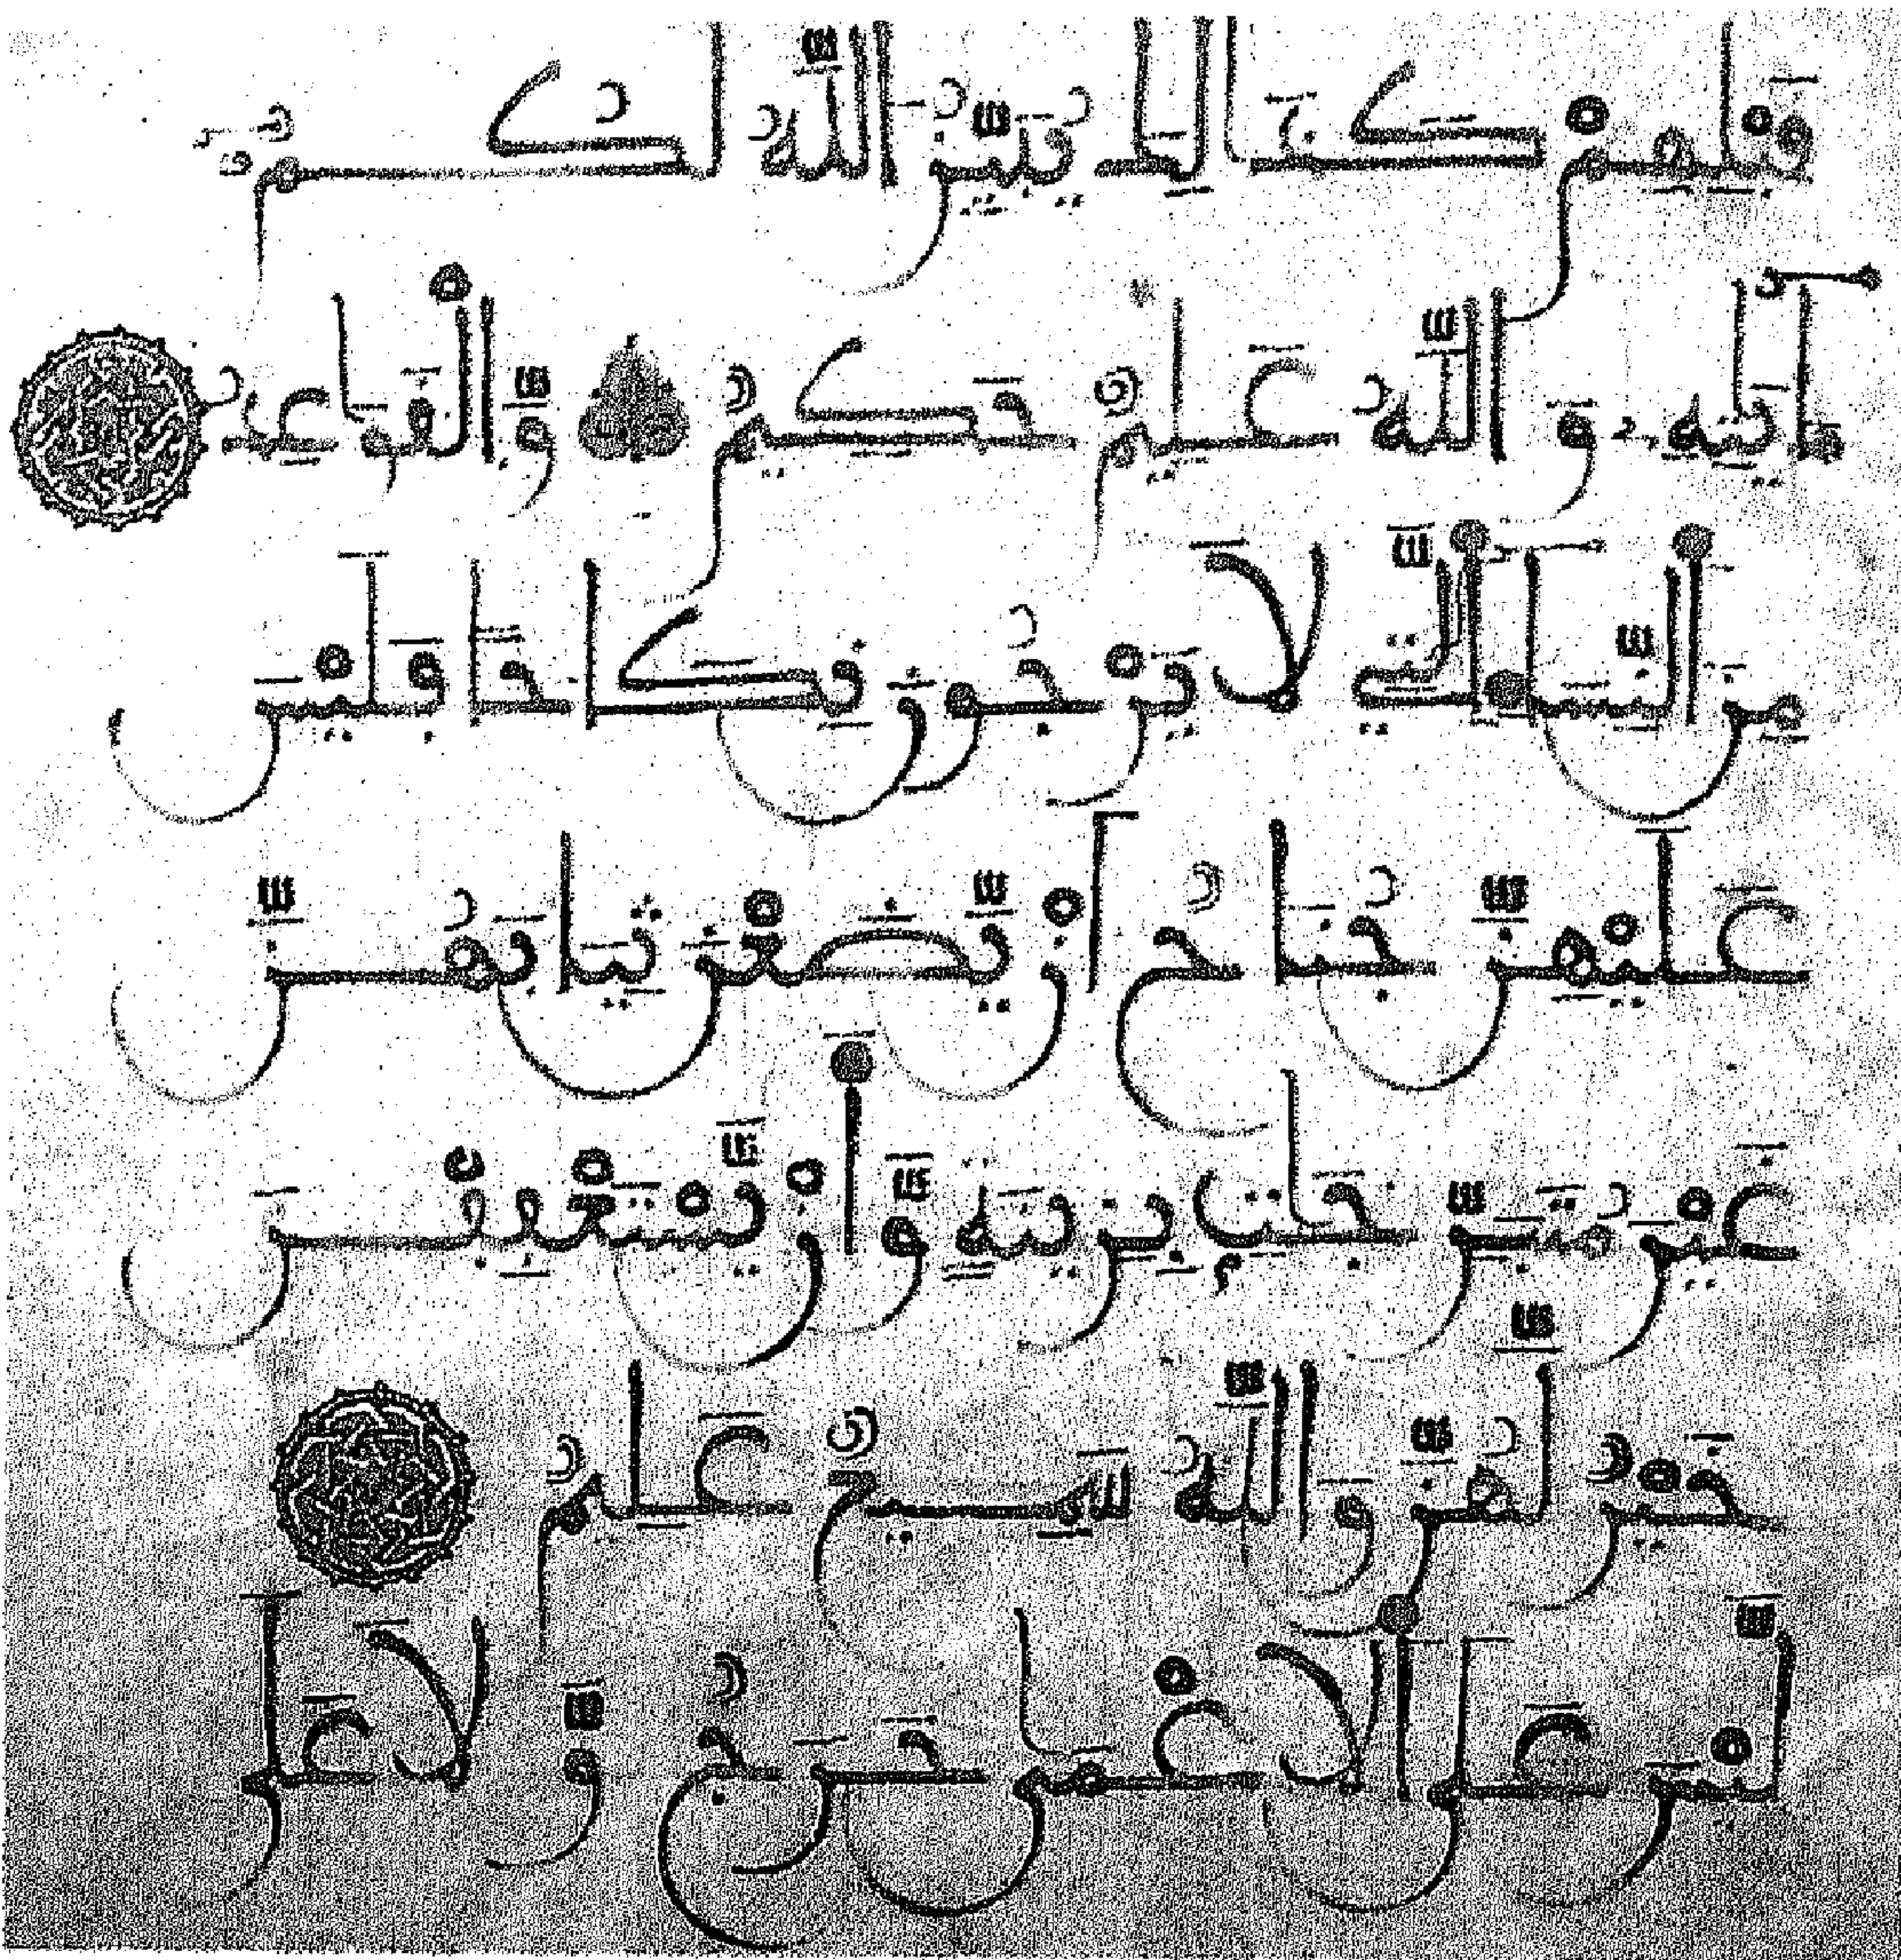 قَبْلِهِمْ كَذَٰلِكَ يُبَيِّنُ اللَّهُ لَكُمُ
ءَايَٰتِهِ وَاللَّهُ عَلِيمٌ حَكِيمٌ وَالْقَوَٰعِدُ
مِنَ النِّسَاءِ الَّٰتِي لَا يَرْجُونَ نِكَاحًا فَلَيْسَ
عَلَيْهِنَّ جُنَاحٌ أَنْ يَضَعْنَ ثِيَابَهُنَّ
غَيْرَ مُتَبَرِّجَٰتٍ بِزِينَةٍ وَأَنْ يَسْتَعْفِفْنَ
خَيْرٌ لَّهُنَّ وَاللَّهُ سَمِيعٌ عَلِيمٌ
لَّيْسَ عَلَى الْأَعْمَىٰ حَرَجٌ وَلَا عَلَى